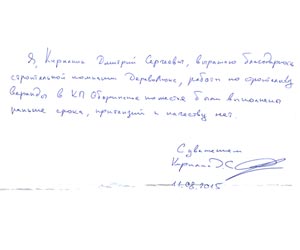 Я, Кирилин Дмитрий Сергеевич, выражаю благодарность
строительной компании, работы по строительству
веранды в КП были выполнены
раньше срока, претензий к качеству нет.
С уважением
Кирилин Д.С.
11.08.2015